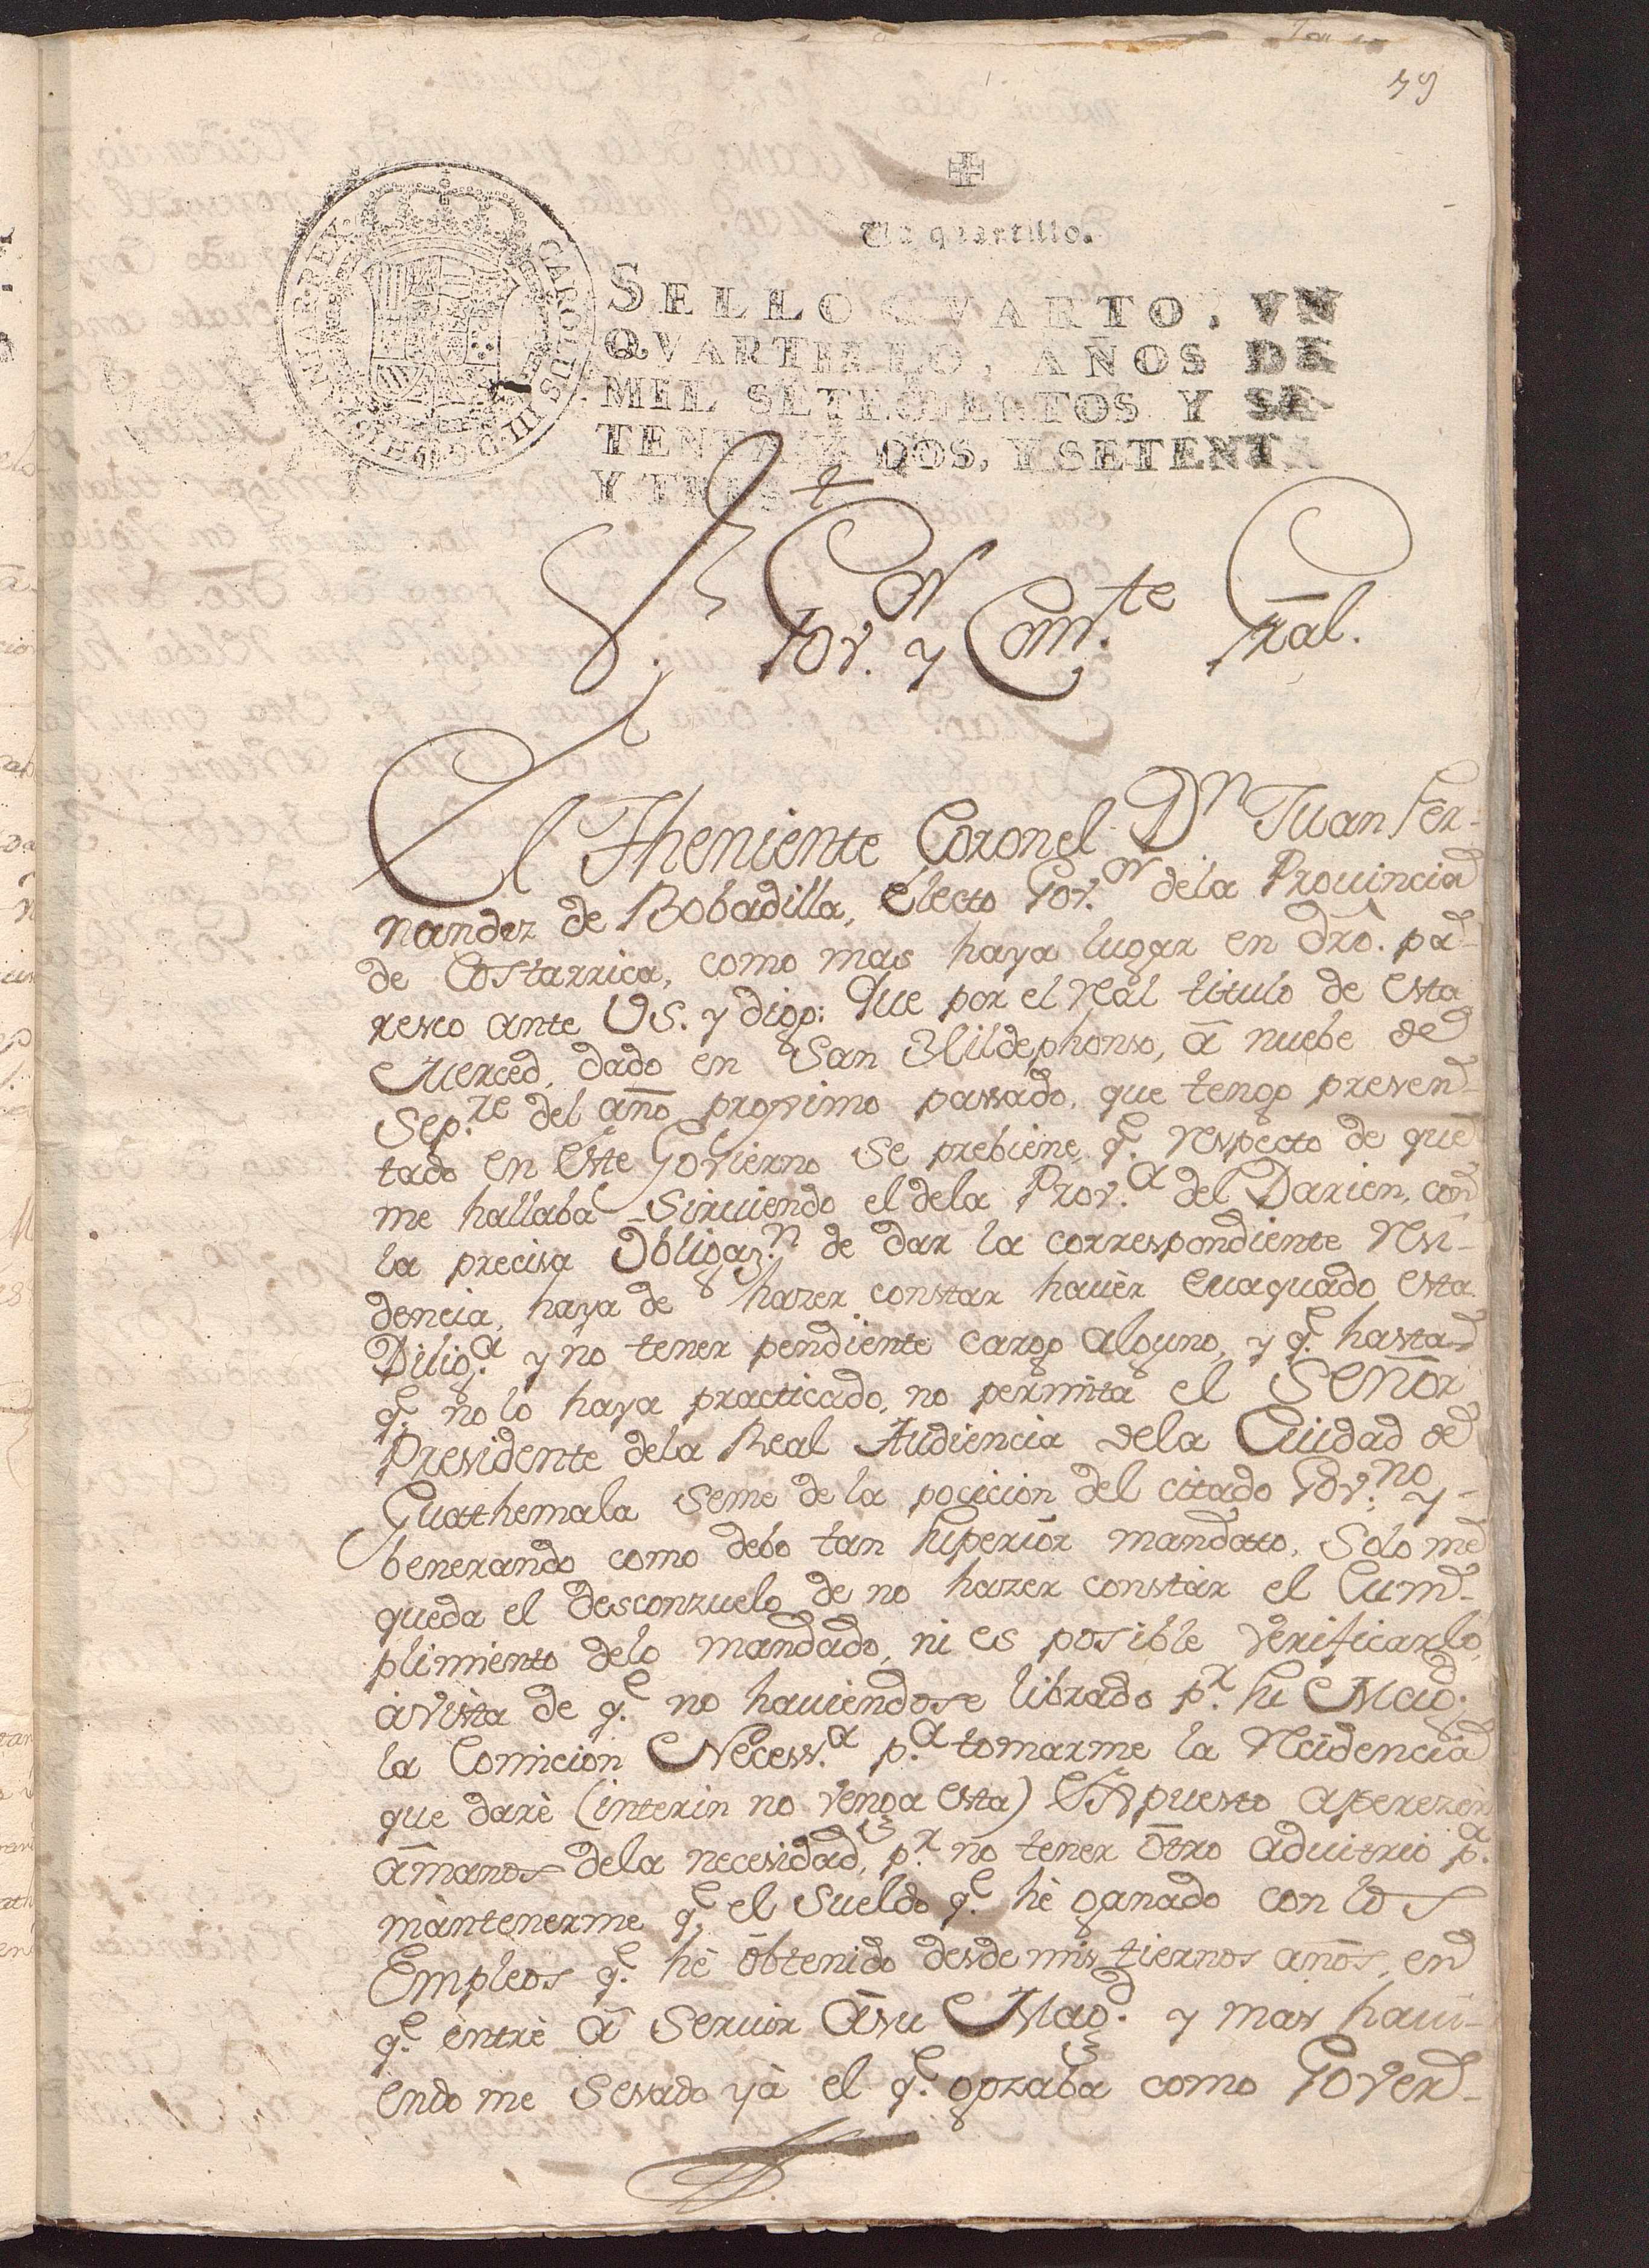 79
Un quartillo.
SELLO QVARTO, VN
QVARTILLO, AÑOS DE
MIL SETECIENTOS Y SE-
TENTA Y DOS, Y SETENTA
Y TRES.
CAROLUS III D G HISP REX
S.r Gov.or y Com.te Gral.
El Theniente Coronel Dn Juan Fer-
nandez de Bobadilla, Electo Gov.or dela Provincia
de Costarrica, como mas haya lugar en dro. pa-
resco ante VS. y digo: Que por el Real titulo de esta
Merced, dado en San Yldephonso, â nuebe de
Sep.re del año proximo passado, que tengo presen-
tado en este Govierno se prebiene, q.e respecto de que
me hallaba Sirviendo el dela Prov.a del Darien, con
la precisa Obligaz.n de dar la correspondiente Resi-
dencia, haya de hazer constar havèr evaquado esta
Dilig.a y no tener pendiente cargo alguno, y q.e hasta
q.e no lo haya practicado, no permita el Señor
Presidente dela Real Audiencia dela Ciudad de
Guathemala seme de la pocicion del citado Gov.no y-
benerando como debo tan superior mandato, Solo me
queda el desconzuelo de no hazer constàr el Cum-
plimiento delo mandado, ni es posible verificarlo,
à vista de q.e no haviendose librado p.r su Mag.d
la Comicion Necess.a p.a tomarme la Recidencia
que darè (interin no venga esta) Expuesto aperezer
âmanos dela necesidad, p.r no tener ôtro advitrio p.a
màntenerme q.e el Sueldo q.e hè ganado con los
Empleos q.e hè ôbtenido desde mis tiernos años, en
q.e entrè â Servir âsu Mag.d y mas havi-
endo me Sesado yà el q.e gozaba como Gover-